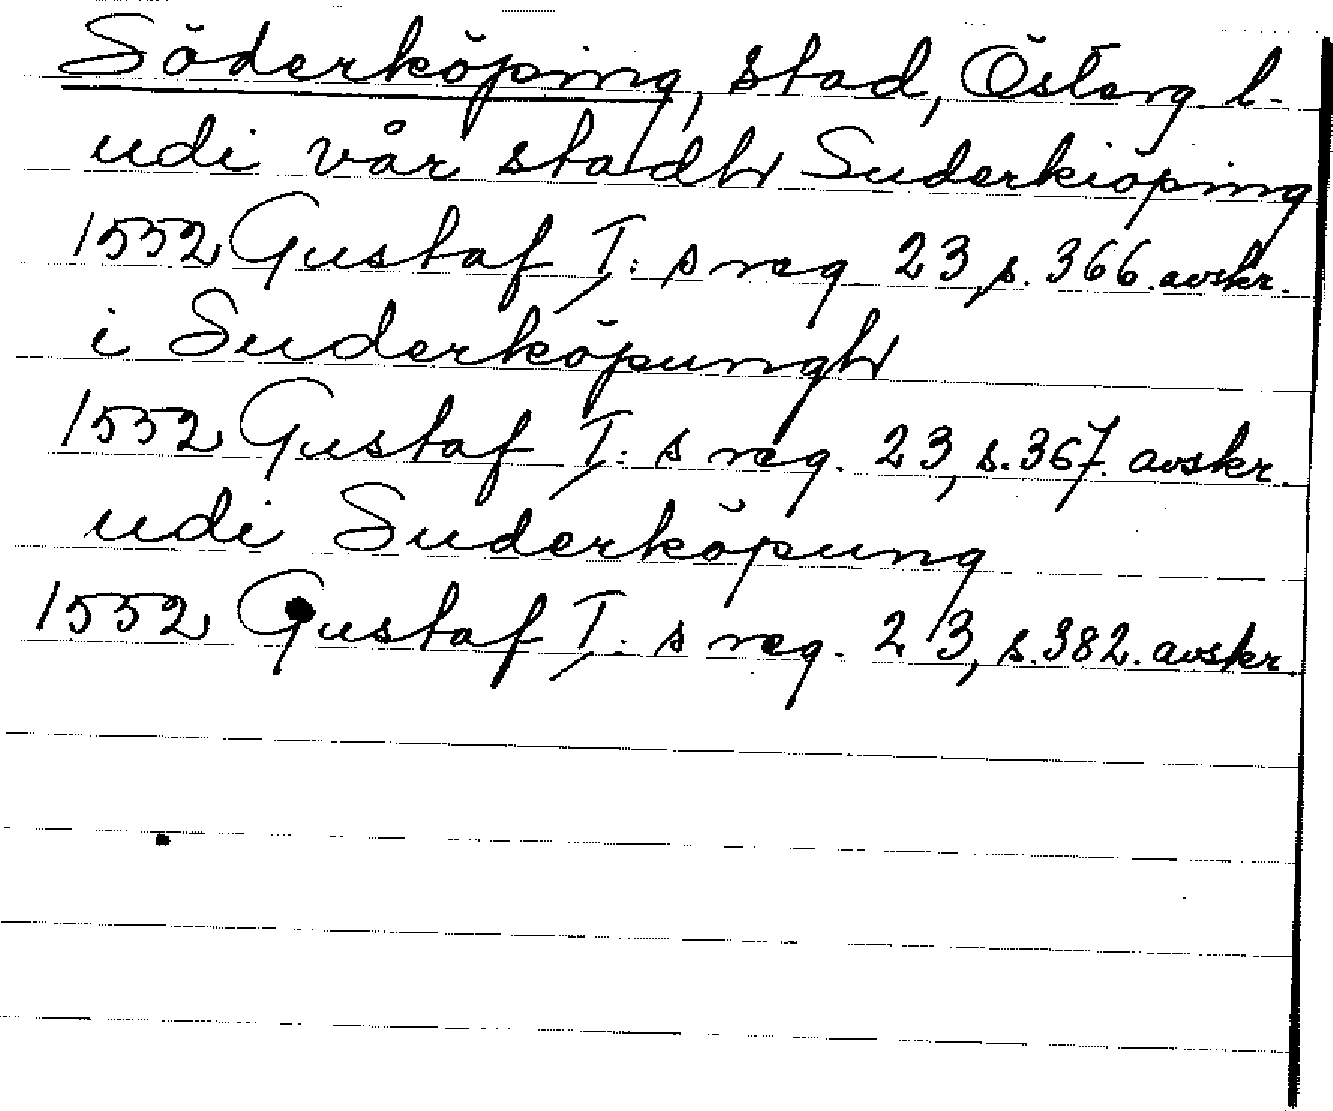 Söderköping, stad, Österg. l.
udi vår stadh Suderkiöping
1552 Gustaf I:s reg 23, s. 366. avskr.
i Suderköpungh
1552 Gustaf I:s reg. 23, s. 367. avskr.
udi Suderköpung
1552 Gustaf I:s reg. 23, s. 382. avskr.